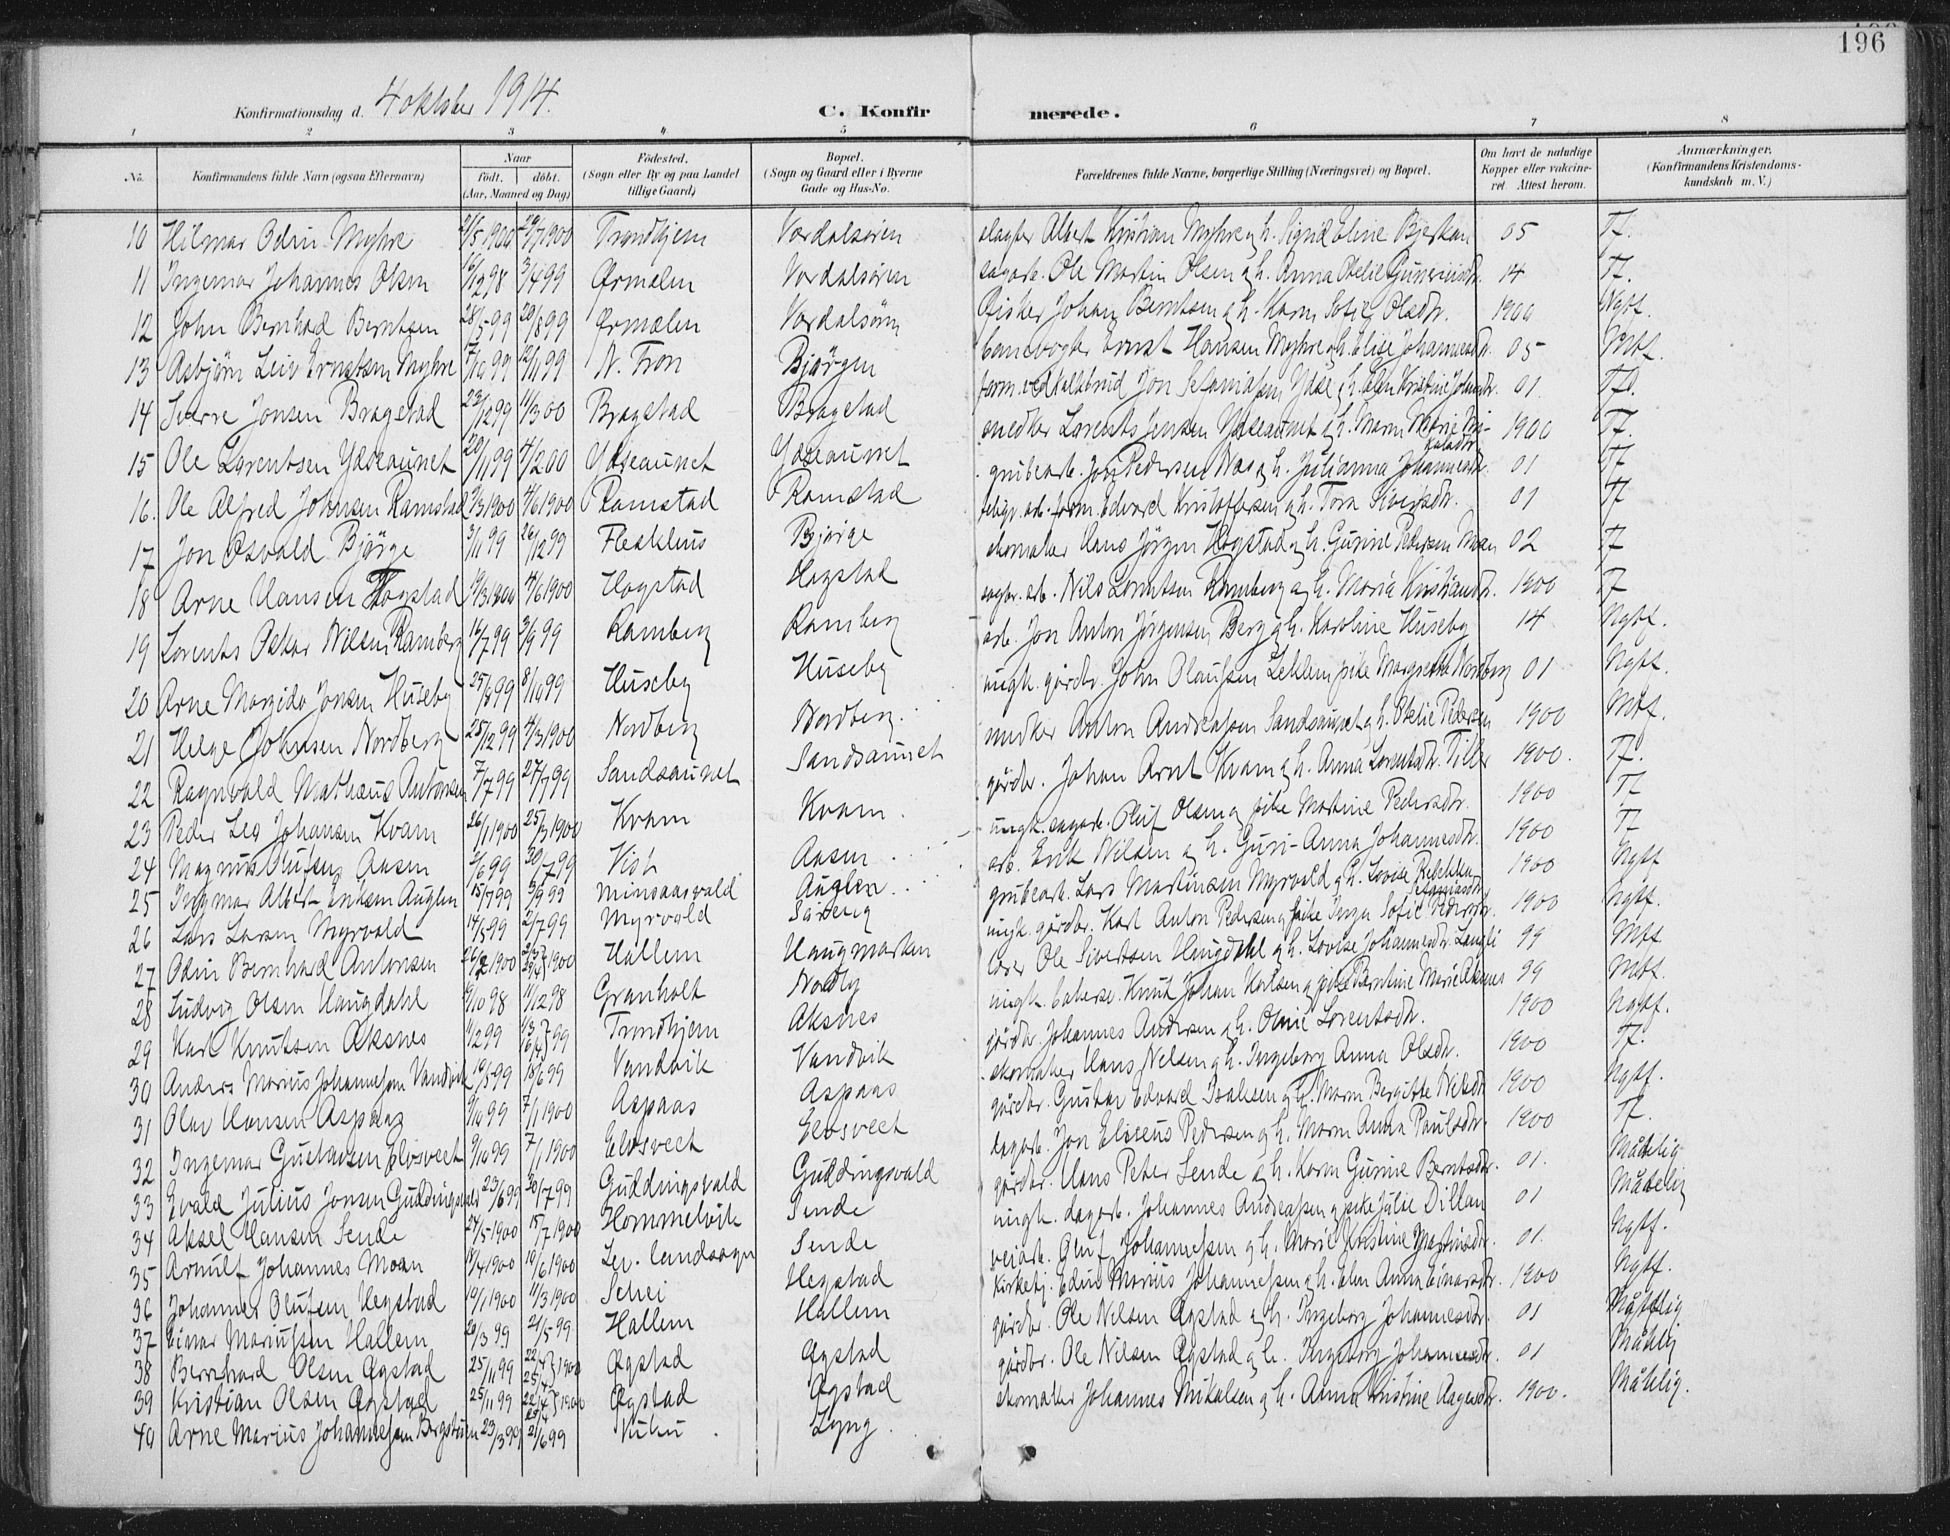 196
Konfirmationsdag d. 4 oktober 1914.
C. Konfirmerede.
1 2 3 4 5 6 7 8
No. Konfirmandens fulde Navn (ogsaa Efternavn) Naar födt. döbt. (Aar, Maaned og Dag) Födested. (Sogn eller By og paa Landet tillige Gaard) Bopæl. (Sogn og Gaard eller i Byerne Gade og Hus-No. Forældrenes fulde Navne, borgerlige Stilling (Næringsvei) og Bopæl. Om havt de naturlige Kopper eller vakcineret. Attest herom. Anmærkninger. (Konfirmandens Kristendomskundskab m. V.)
10 Hilmar Odin Myhre 2/5 1900 29/7 1900 Trondhjem Værdalsøren slagter Albert Kristian Myhre og h. Sigrid Eline Bjerkan 05 Tf.
11 Ingemar Johannes Olsen 16/12 98 3/4 99 Ørmelen Værdalsøren sagarb. Ole Martin Olsen og h. Anna Otelie 14 Tf.
12 John Bernhad Berntsen 28/5 99 20/8 99 Ørmelen Værdalsøren fisker Johan Berntsen og h. Karen Sofie Olsdtr. 1900 Ngtf.
13 Asbjörn Leiv Ernstsen Myhre 17/10 99 12/11 99 N. Fron Bjørgen banevogter Ernst Hansen Myhre og h. Elise Johannesdtr. 05 Mtf.
14 Sverre Jonsen Bragstad 23/12 99 11/3 00 Bragstad Bragstad form. ved Kalkbrud Jon og h. Elen Kristine 01. Tf.
15 Ole Larentsen Ydseaunet 20/11 99 4/2 00 Ydseaunet Ydseaunet snedker Lorents Jensen Ydseaunet og h. Maren Marie 1900 Tf.
16. Ole Alfred Johnsen Ramstad 9/3 1900 4/6 1900 Ramstad Ramstad grubearb. Jon Pedersen Næs og h. Julianna Johannesdtr. 01 Tf
17 Jon Osvald Bjørge 3/11 99 26/12 99 Fleskhus Bjørge form. Edvard Kristoffersen og h. Tora Sivertsdtr. 01 Tf
18 Arne Hansen Hogstad 19/3 1900 4/6 1900 Hogstad Hogstad skomaker Hans Jörgen Hogstad og h. Gurine Pedersen Moen 02 Tf
19 Lorents Oskar Nilsen Ramberg 16/7 99 3/9 99 Ramberg Ramberg Nils Lorentsen Ramberg og h. Maria Kristiansdtr. 1900 Tf
20 Arne Margido Jonsen Huseby 25/8 99 8/10 99 Huseby Huseby arb. Jon Anton Jørgensen Berg og h. Karoline Huseby 14 Ngtf.
21 Helge Johnsen Nordberg 25/12 99 4/3 1900 Nordberg Nordberg. ungk. gårdbr. John Olaussen Leklem pike Margrethe Nordberg 01 Ngtf.
22 Ragnvald Mathæus Antonsen 7/7 99 27/7 99 Sandsaunet Sandsaunet snedker Anton Andreassen Sandsaunet og h. Otelie Pedersen 1900 Mtf.
23 Peder Leo Johansen Kvam 26/1 1900 25/3 1900 Kvam Kvam. gårdbr. Johan Arnt Kvam og h. Anna Lorentsdtr. Tiller 1900. Tf.
24 Magnus Olufsen Aasen 2/6 99 30/7 99 Vist Aasen. ungk. sagarb. Oluf Olsen og pike Martine Pedersdtr. 1900 Tf
25 Ingmar Albert Eriksen Auglen 15/7 99 3/9 99 Minsaasvald Auglen. arb. Erik Nilsen og h. Guri-Anna Johannesdtr. 1900 Tf
26 Lars Larsen Myrvold 14/5 99 2/7 99 Myrvold grubearb. Lars Martinsen Myrvold og h. Lovise Rebekka 1900 Ngtf
27 Odin Bernhard Antonsen Hallem Haugmarken ungk. gårdbr. Karl Anton Pedersen og pike Inga Sofie 1900 Ngtf.
28 Ludvig Olsen Haugdahl 9/10 98 11/12 98 Granholt Nordly lærer Ole Sivertsen Haugdahl og h. Lovise Johannesdtr. 99 Mtf.
29 Karl Knutsen Aksnes 11/2 99 Trondhjem Aksnes ungk. Knut Johan Karlsen og pike Berntine Marie Aksnes 99 Mtf.
30 Anders Marius Johannesen Vandvik 19/5 99 18/6 99 Vandvik Vandvik gårdbr. Johannes Andersen og h. Oline Lorentsdtr. 1900 Ngtf.
31 Olav Hansen Aspaas 9/10 99 7/1 1900 Aspaas Aspaas skomaker Hans Nelsen og h. Ingeborg Anna Olsdtr. 1900 Tf.
32 Ingemar Gustavsen Elvsveet 9/10 99 7/1 1900 Elvsveet Elvsveet gårdbr. Gustav Edvard Isaksen og h. Maren Bergitte Nilsdtr 1900 Ngtf.
33 Evald Julius Jonsen Guddingsvald 23/6 99 30/7 99 Guddingsvald Guddingsvald dagarb. Jon Eliseus Pedersen og h. Maren Anna Paulsdtr. 1900 Tf.
34 Aksel Hansen Sende 24/5 1900 15/7 1900 Hommelvik Sende gårdbr. Hans Peter Sende og h. Karen Gurine Berntsdtr. 01. Måtelig
35 Arnulf Johannes Moan 18/4 1900 10/6 1900 Lev. landsogn Sende ungk. dagarb. Johannes Andreassen og pike Julie Dillan 01 Måtelig
36 Johannes Olufsen Hegstad 19/1 1900 11/3 1900 Schei Hegstad veiarb. Oluf Johannessen og h. Marie Kristine Martinsdtr. 01. Ngtf.
37 Einar Mariussen Hallem 20/3 99 21/5 99 Hallem Hallem kirketj. Edin Marius Johannessen og h. Elen Anna Einarsdtr. 1900 Ngtf.
38 Bernhard Olsen Øgstad 25/11 99 Øgstad Øgstad gårdbr. Ole Nilsen Øgstad og h. Ingeborg Johannesdtr. 01 Måtelig
39 Kristian Olsen Øgstad 25/11 99 Øgstad Øgstad gårdbr. Ole Nilsen Øgstad og h. Ingeborg Johannesdtr. 01 Måtelig
40 Arne Marius Johannessen 23/3 99 21/6 99 Lyng. skomaker Johannes Mikalsen og h. Anna Kristine Aagesdtr. 1900. Måtelig.